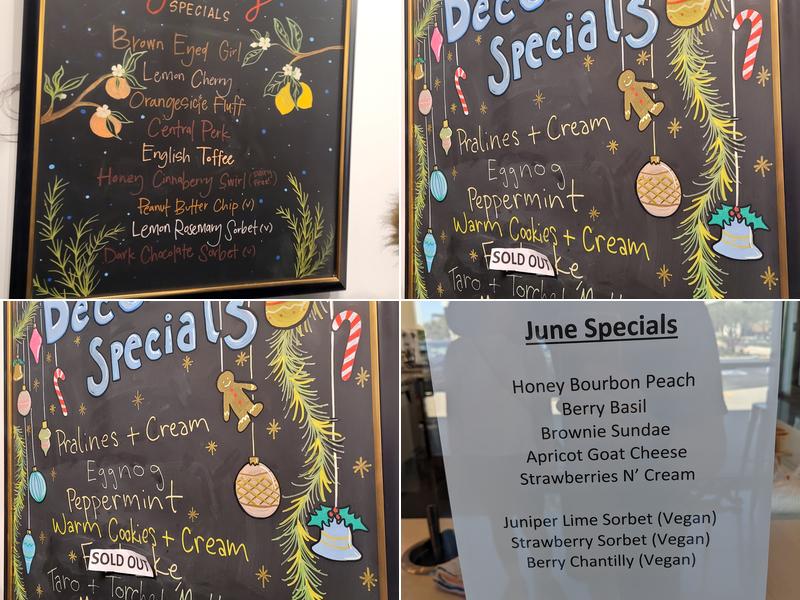 SPECIALS
Brown Eyed Girl
Lemon Cherry
Orangesicle Fluff
Central Perk
English Toffee
Honey Cinnaberry Swirl (dairy free)
Peanut Butter Chip (v)
Lemon Rosemary Sorbet (v)
Dark Chocolate Sorbet (v)
Specials
Pralines + Cream
Eggnog
Peppermint
Warm Cookies + Cream
SOLD OUT
Taro +
Specials
Pralines + Cream
Eggnog
Peppermint
Warm Cookies + Cream
SOLD OUT
Taro +
June Specials
Honey Bourbon Peach
Berry Basil
Brownie Sundae
Apricot Goat Cheese
Strawberries N' Cream
Juniper Lime Sorbet (Vegan)
Strawberry Sorbet (Vegan)
Berry Chantilly (Vegan)